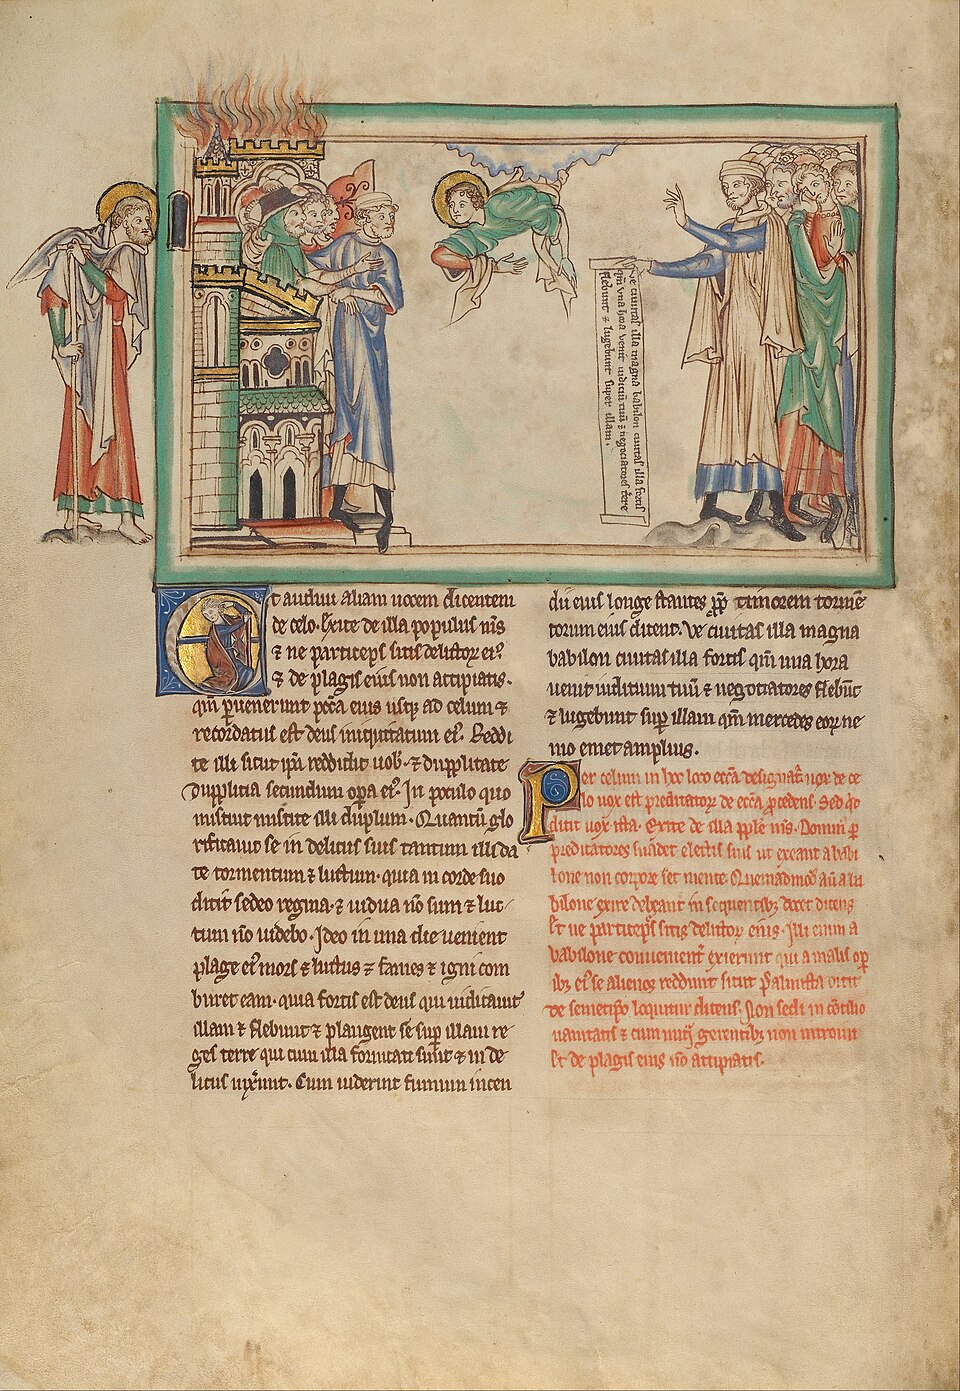 Ve ciuitas illa magna babilon ciuitas illa fortis
qm̄ vna hora venit iudiciū tuū ⁊ negociatores terre
flebunt ⁊ lugebunt super illam.
Et audiui aliam uocem dicentem
de celo. Exite de illa populus m̅s
⁊ ne participes sitis delictoꝝ eiꝰ
⁊ de plagis eius non accipiatis.
qm̄ ꝑuenerunt pctā eius usqꝫ ad celum ⁊
recordatus est deus iniquitatum eiꝰ. Reddi
te illi sicut ip̄a reddidit uob̄. ⁊ dupplicate
dupplicia secundum oꝑa eiꝰ. In poculo quo
miscuit miscite illi duplum. Quantū glo
rificauit se in deliciis suis tantum illi da
te tormentum ⁊ luctum. quia in corde suo
dicit sedeo regina. ⁊ uidua nō sum ⁊ luc
tum nō uidebo. Ideo in una die uenient
plage eiꝰ mors ⁊ luctus ⁊ fames ⁊ igni com
buret eam. quia fortis est deus qui iudicauit
illam ⁊ flebunt ⁊ plangent se suꝑ illam re
ges terre qui cum illa fornicati sunt ⁊ in de
liciis uixerunt. Cum uiderint fumum incen
dii eius longe stantes ꝓpt̄ timorem tormē
torum eius dicent. Ve ciuitas illa magna
babilon ciuitas illa fortis qm̄ una hora
uenit iudicium tuū ⁊ negociatores flebūt
⁊ lugebunt suꝑ illam qm̄ merces eoꝝ ne
mo emet amplius.
Per celum in hoc loco eccā designat᷑ uox de ce
lo uox est predicatoꝝ de eccā ꝓcedens. Sed qd̄
dicit uox ista. Exite de illa pp̄le m̅s. Domin̄ ꝑ
predicatores suadet electis suis ut exeant a babi
lone non corꝑore set mente. Quemadmodū aū a ba
bilone exire debeant in sequentibꝫ docet dicens
Et ne participes sitis delictoꝝ eius. Illi enim a
babilone conuenient᷑ exierunt qui a malis oꝑ
ibꝫ eiꝰ se alienos reddunt sicut psalmista dicit
de semetip̄o loquitur dicens. Non sedi in cōcilio
uanitatis ⁊ cum iniq̄ gerentibꝫ non introibo
Et de plagis eius nō accipiatis.